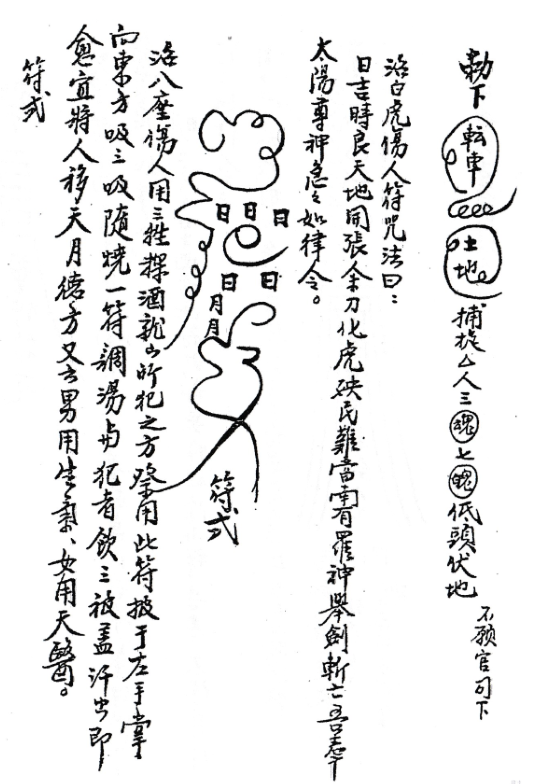 勅下 転車 土地 捕捉厶人三魂七魄低頭伏地 不願官司下
治白虎傷人符咒法曰：
日吉時良天地開張余刀化虎殃民難當南有羅神舉劍斬亡吾奉
太陽尊神急々如律令。
日日日
日日
月月
符式
治八座傷人用三牲粿酒就山所犯之方祭用此符披于左手掌
向東方吸三吸隨燒一符調湯与犯者飲三被蓋汗出即
愈宜將人移天月德方又云男用生氣、女用天醫。
符式